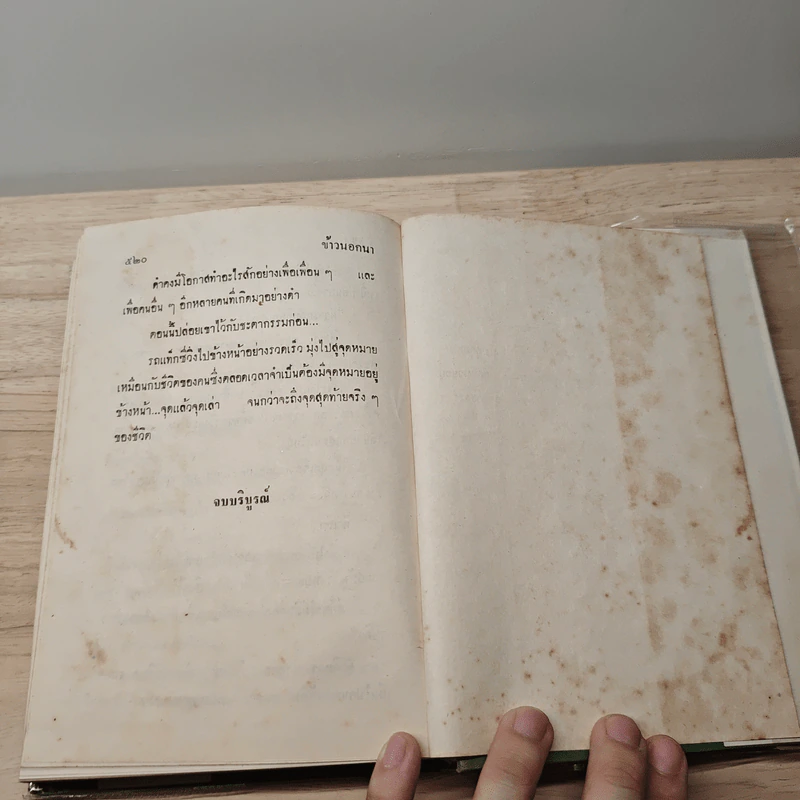 ๕๒๐
ข้าวนอกนา
ดำคงมีโอกาสทำอะไรสักอย่างเพื่อเพื่อน ๆ และ
เพื่อคนอื่น ๆ อีกหลายคนที่เกิดมาอย่างดำ
ตอนนี้ปล่อยเขาไว้กับชะตากรรมก่อน...
รถแท็กซี่วิ่งไปข้างหน้าอย่างรวดเร็ว มุ่งไปสู่จุดหมาย
เหมือนกับชีวิตของคนซึ่งตลอดเวลาจำเป็นต้องมีจุดหมายอยู่
ข้างหน้า...จุดแล้วจุดเล่า จนกว่าจะถึงจุดสุดท้ายจริง ๆ
ของชีวิต
จบบริบูรณ์